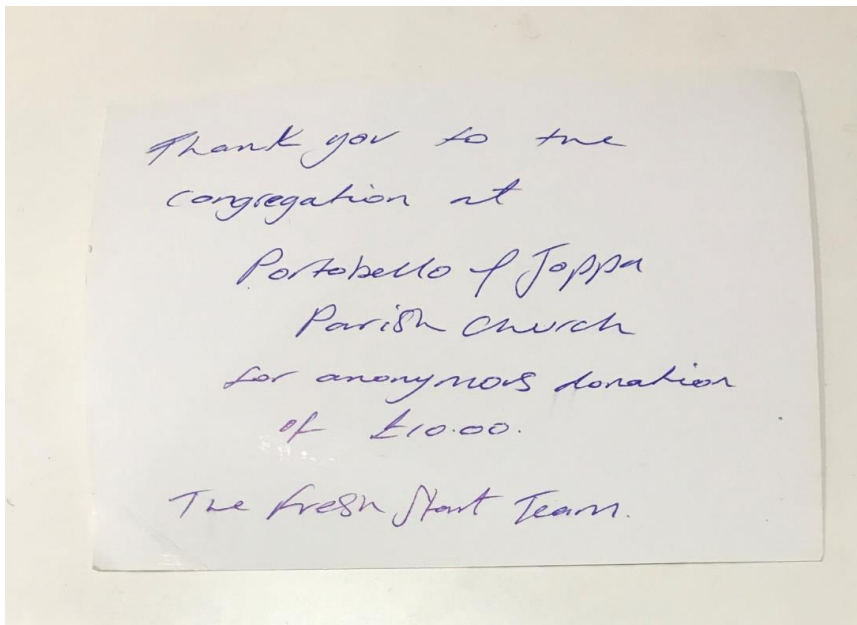 Thank you to the
congregation at
Portobello & Joppa
Parish Church
for anonymous donation
of £10.00.
The Fresh Start Team.